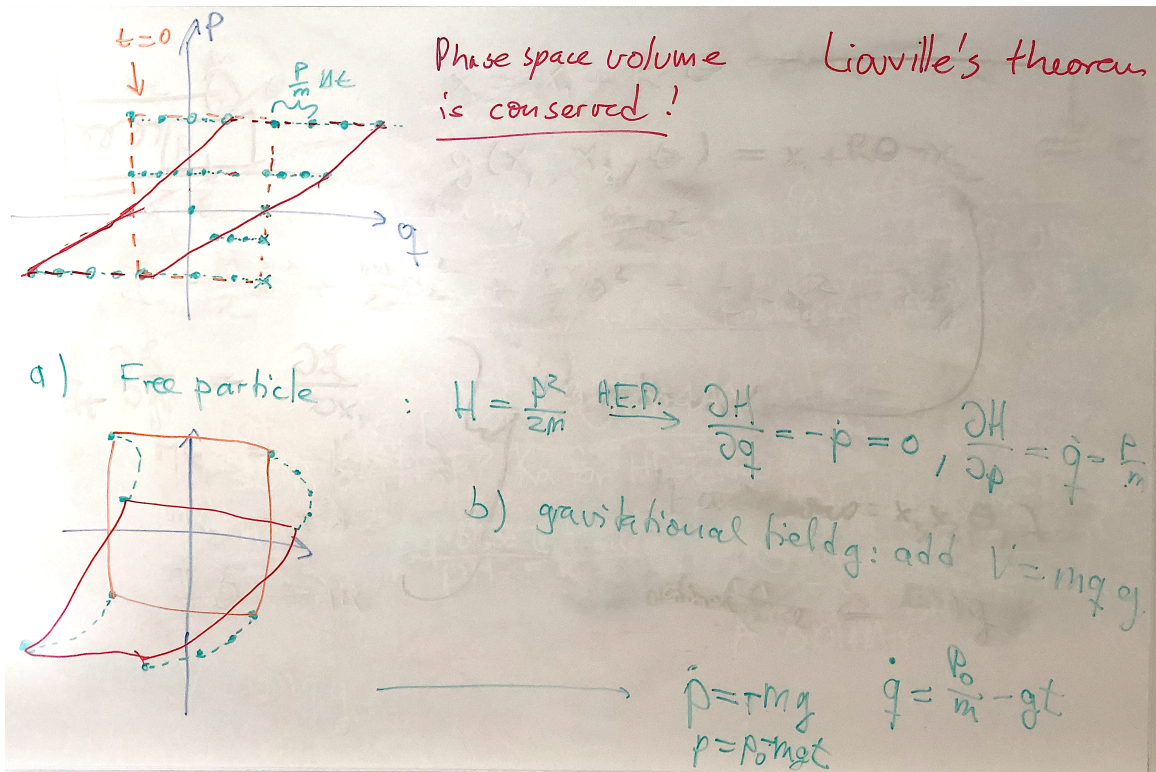 t=0
P
P/m Δt
Phase space volume
is conserved!
Liouville's theorem
q
a) Free particle : H = p²/2m H.E.D. → ∂H/∂q = -ṗ = 0, ∂H/∂p = q̇ = p/m
b) gravitational field g: add V = mqg
→ ṗ = -mg q̇ = p₀/m - gt
p = p₀-mgt